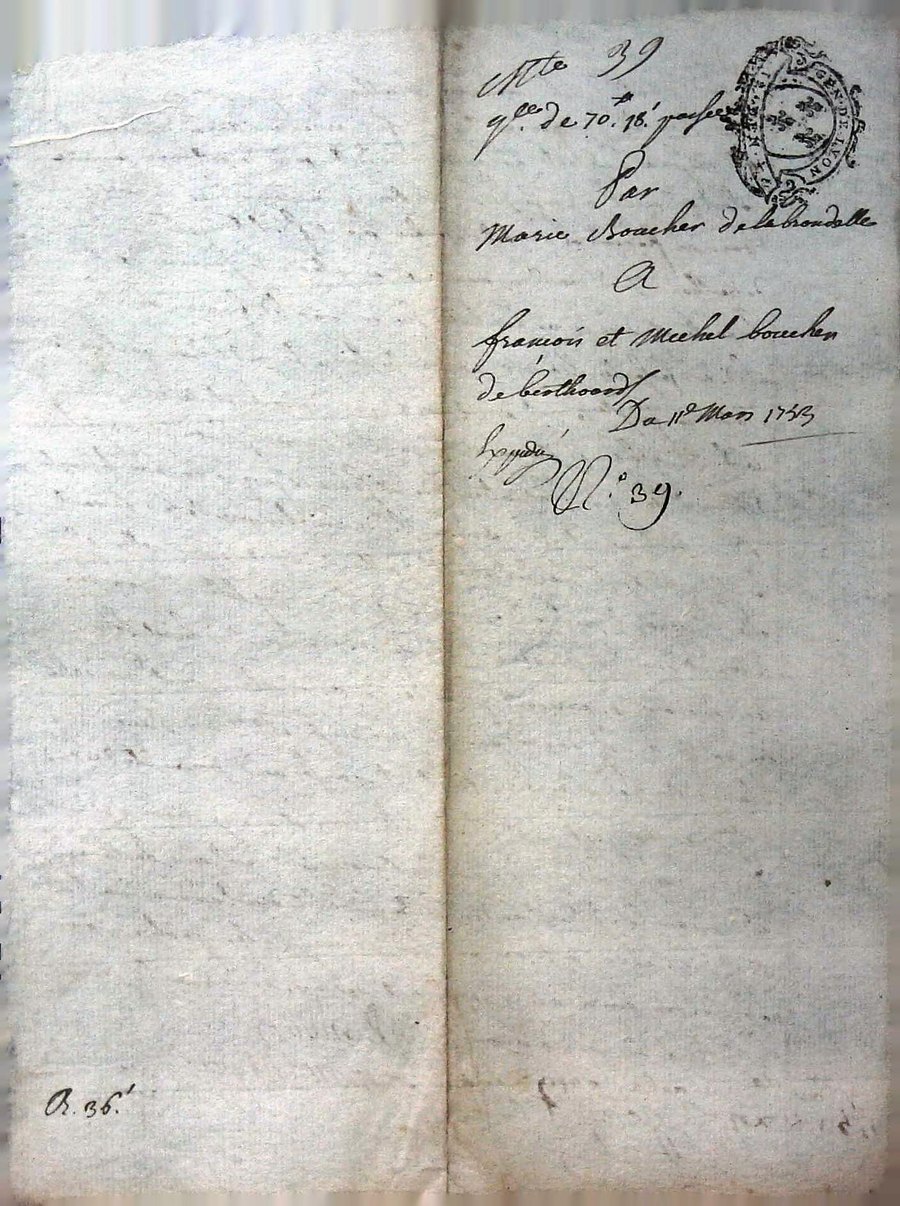 Cotte 39
q.ce de 70.# 18.s passée
Par
Marie Boucher delabrondelle
A
françois et Michel boucher
de berthoord
Du 11e Mars 1753
Expedié
N.o 39.
GEN. DE LYON
R. 36.s